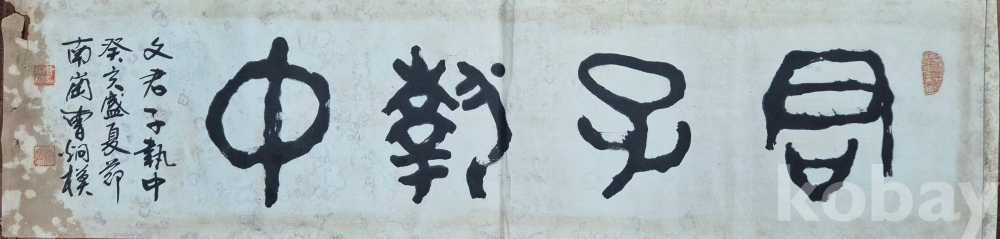 君子執中
文君子執中
癸亥盛夏節
南崗曹炯模
kobay